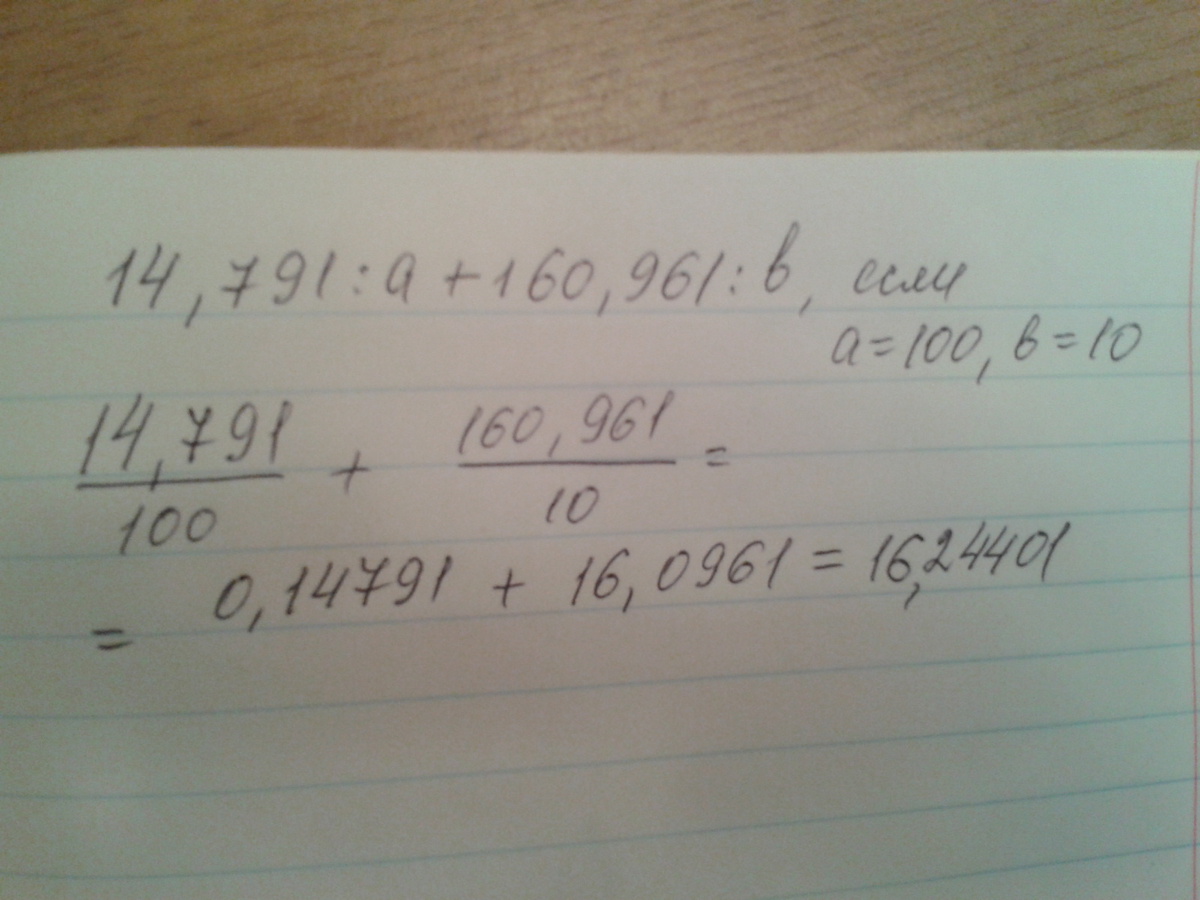 14,791:а+160,961:в, если
а=100, в=10
14,791/100 + 160,961/10 =
= 0,14791 + 16,0961 = 16,24401